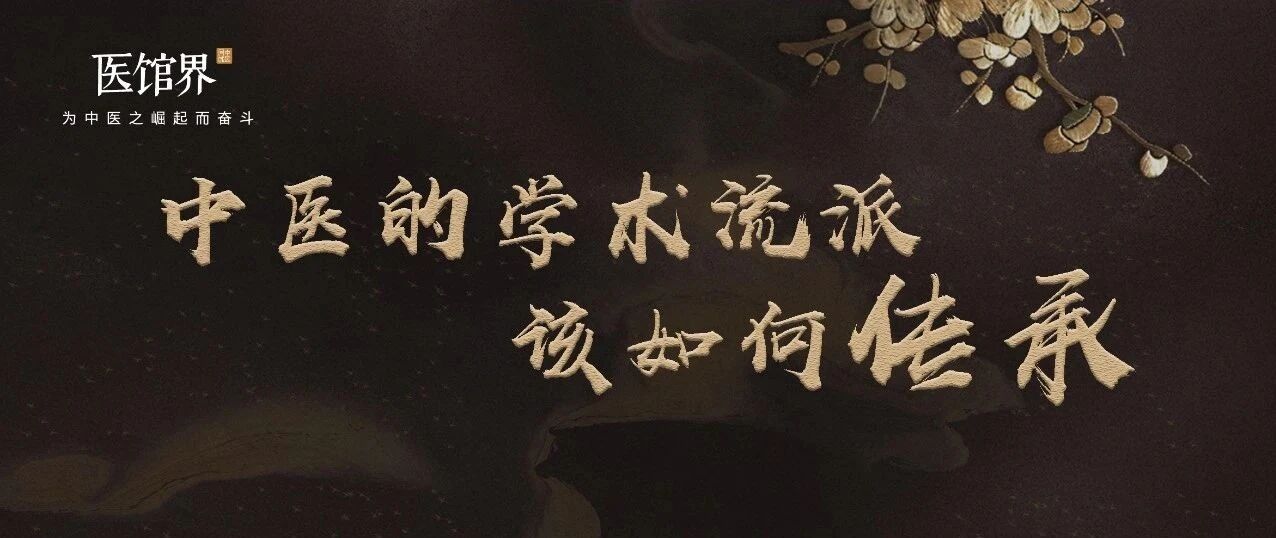 医馆界
为中医之崛起而奋斗
中医的学术流派
该如何传承